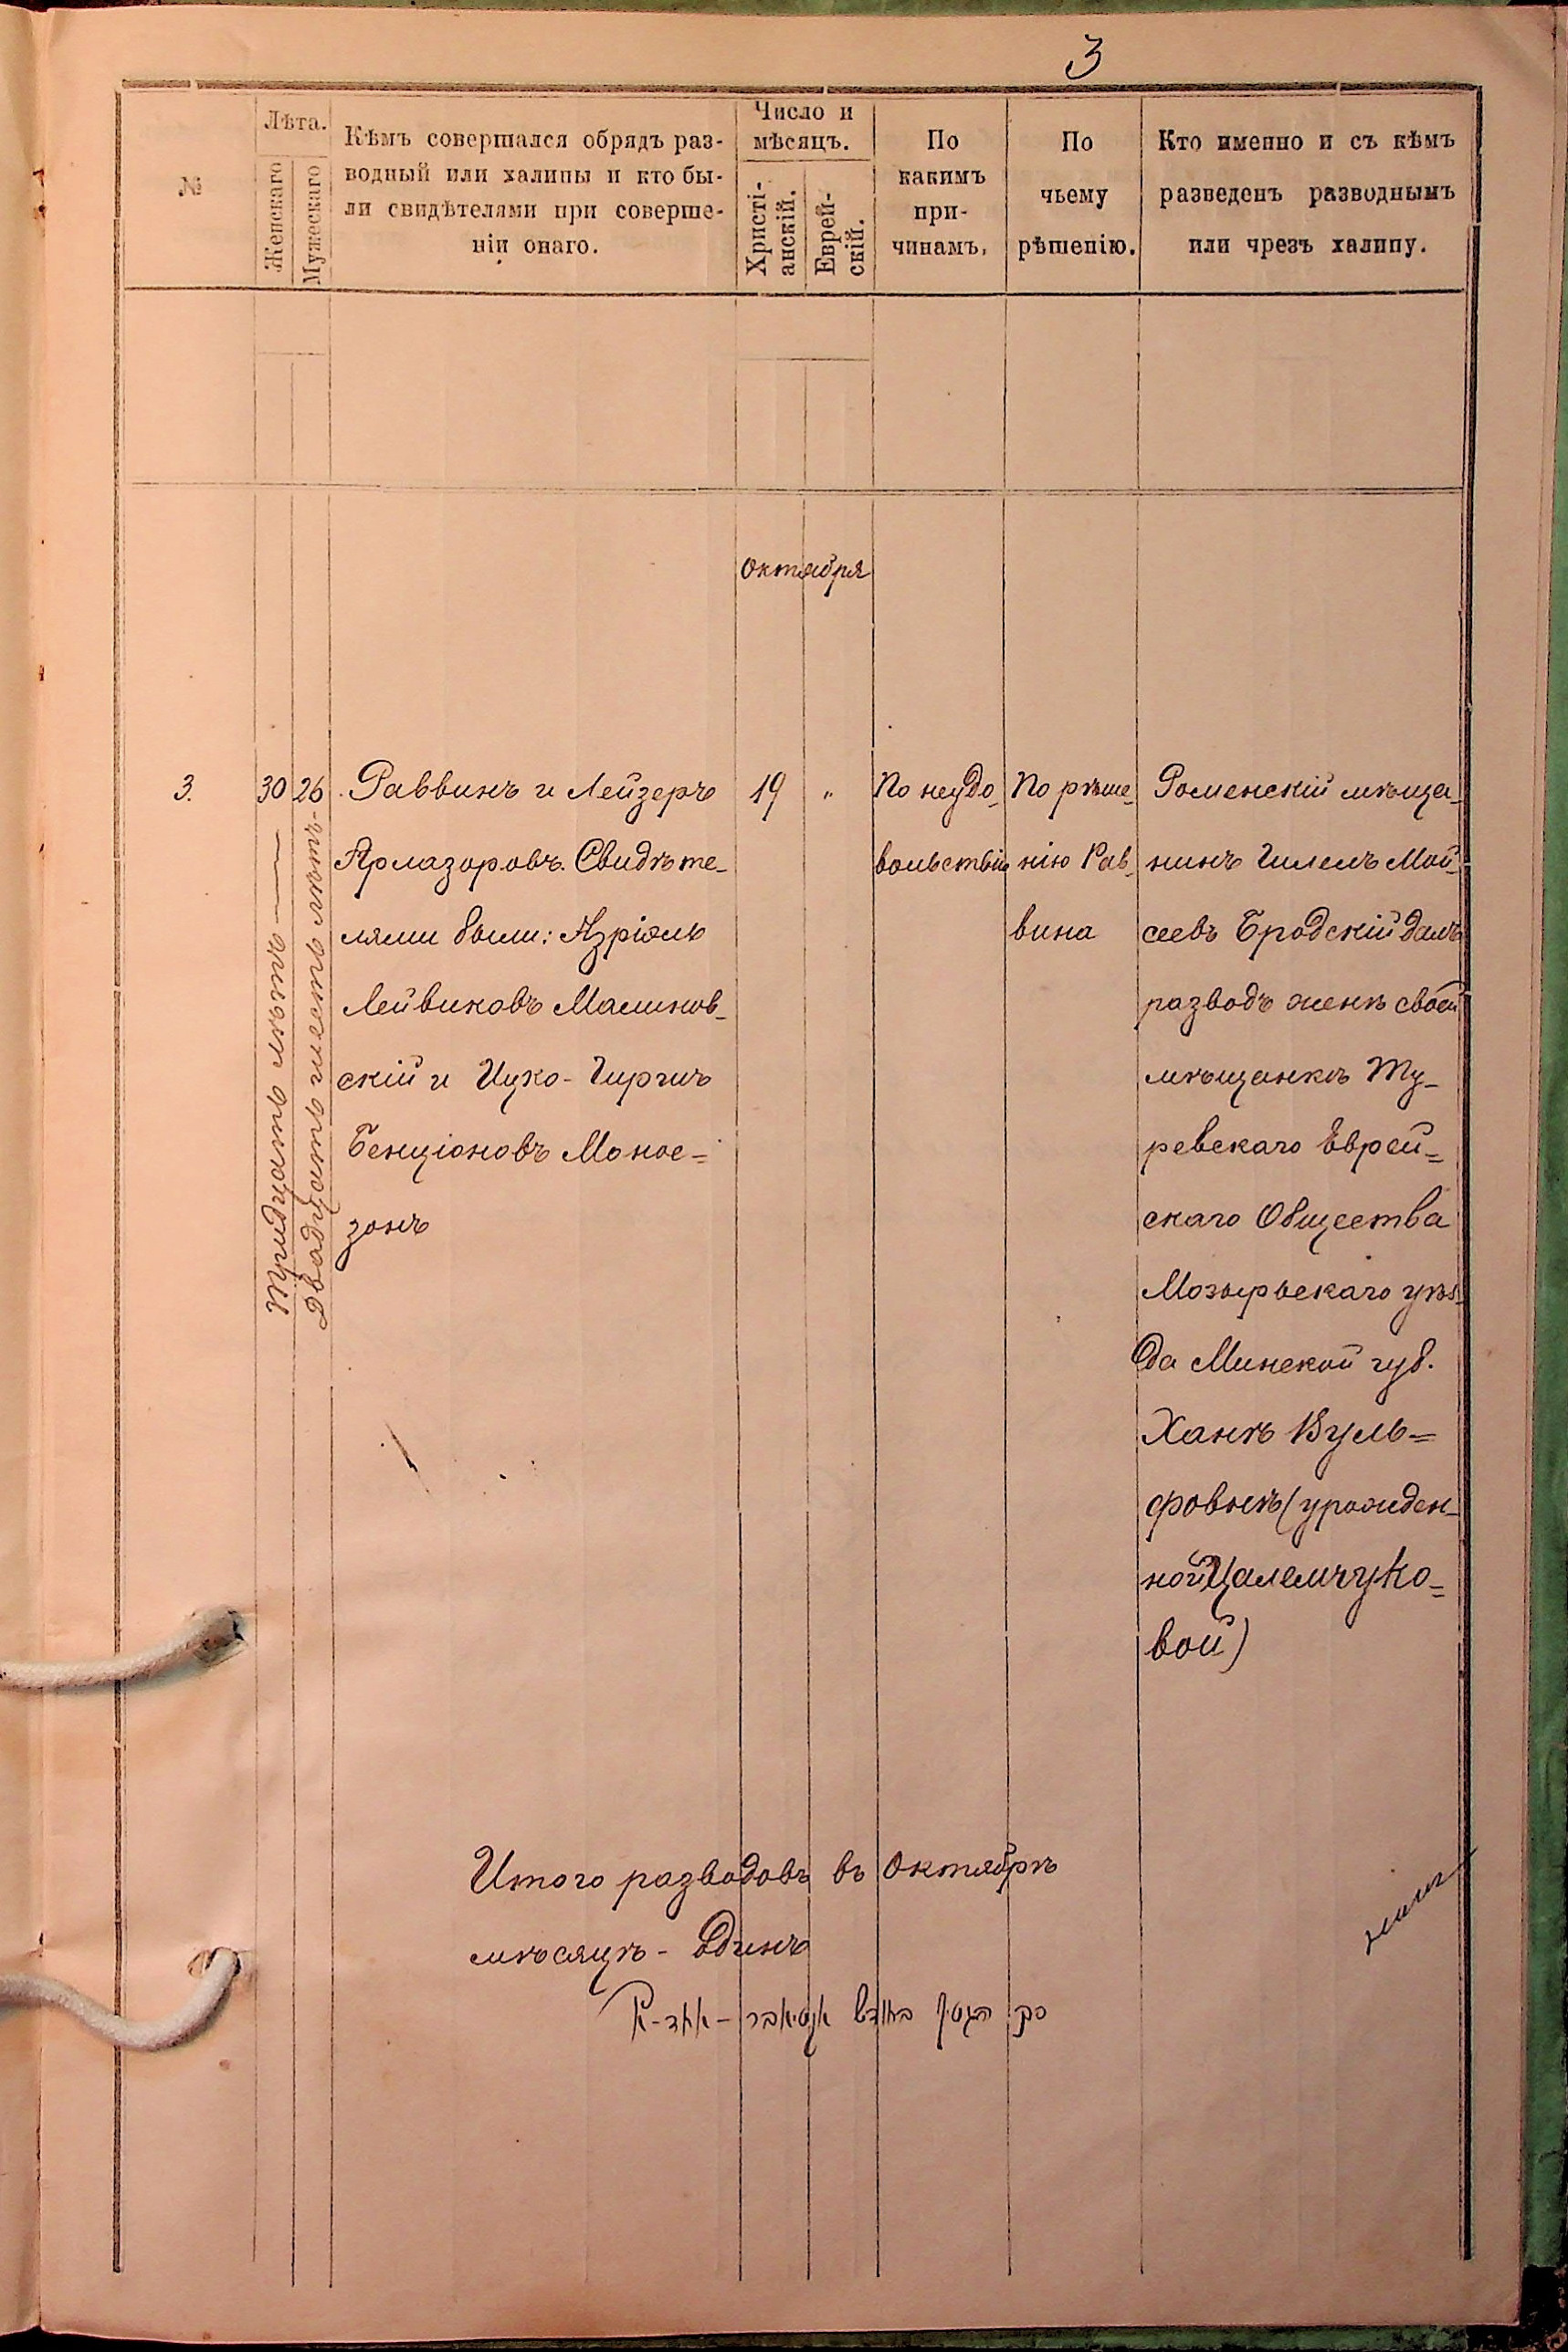 3
№
Лѣта.
Женскаго
Мужескаго
Кѣмъ совершался обрядъ раз-
водный или халицы и кто бы-
ли свидѣтелями при соверше-
ніи онаго.
Число и
мѣсяцъ.
Христі-
анскій.
Еврей-
скій.
По
какимъ
при-
чинамъ.
По
чьему
рѣшенію.
Кто именно и съ кѣмъ
разведенъ разводнымъ
или чрезъ халицу.
Октября
3.
30
Тридцать лѣтъ
26
Двадцать шесть лѣтъ
Раввинъ и Лейзеръ
Ярмазоровъ. Свидѣте-
лями были: Азріэль
Лейвиковъ Малинов-
скій и Ицко-Гиршъ
Бенціоновъ Моное-
зонъ
19
"
По неудо-
вольствію
По рѣше-
нію Рав-
вина
Роменскій мѣща-
нинъ Гилель Мой-
сеевъ Бродскій далъ
разводъ женѣ своей
мѣщанкѣ Ту-
ревскаго Еврей-
скаго Общества
Мозырьскаго уѣз-
да Минской губ.
Ханѣ Вуль-
фовнѣ (урожден-
ной Цалемчуко-
вой)
Итого разводовъ въ Октябрѣ
мѣсяцѣ - Одинъ